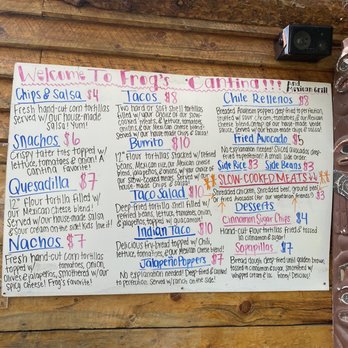 Welcome To Frog's Cantina!!! And
Mexican Grill
Chips & Salsa $4
Fresh hand-cut corn tortillas
served w/ our house-made
salsa! Yum!
Snachos $6
Crispy tater tots topped w/
lettuce, tomatoes & onion! A
cantina favorite!
Quesadilla $7
12" flour tortilla filled w/
our Mexican cheese blend!
Served w/ our house-made salsa
& sour cream on the side! Kids love it!
Nachos $7
Fresh hand-cut corn tortillas
topped w/ tomatoes, onion,
olives & jalapeños, smothered w/ our
spicy cheese! Frog's Favorite!
Tacos $8
Two hard or soft shell tortillas
filled w/ your choice of our slow-
cooked meats, & lettuce, tomatoes,
onions, & our Mexican cheese blend!
Served w/ our house-made chips & salsa!
Burrito $10
12" flour tortillas stuffed w/ refried
beans, Mexican rice, our Mexican cheese
blend, jalapeños, & onions, w/ your choice of
our slow-cooked meats, served w/ our
house-made Chips & Salsa!
Taco Salad $10
Deep-fried tortilla shell filled w/
shredded lettuce, tomatoes, onion,
& jalapeños, topped w/ guacamole!
Indian Taco $10
Delicious fry-bread topped w/ Chili,
lettuce, tomatoes, & our Mexican cheese blend!
Jalapeño Poppers $7
No explanation needed! Deep-fried & cooked
to perfection. Served w/ ranch on the side!
Chile Rellenos $3
Breaded Anaheim peppers deep-fried to perfection,
w/ our house-made Chips & Salsa!
Fried Avocado $5
No explanation needed! Breaded deep-
fried perfection! A small side order.
Side Rice $3 Side Beans $3
SLOW-COOKED MEATS
Shredded chicken, Shredded beef, ground beef,
or fried Avocados (for our vegetarian friends!)
Desserts
Cinnamon Sugar Chips $4
Hand-cut flour tortillas fried & tossed
in cinnamon & sugar!
Sopapillas $7
Bread dough deep-fried until golden brown,
tossed in cinnamon & sugar, smothered w/
whipped cream & honey! Delicious!